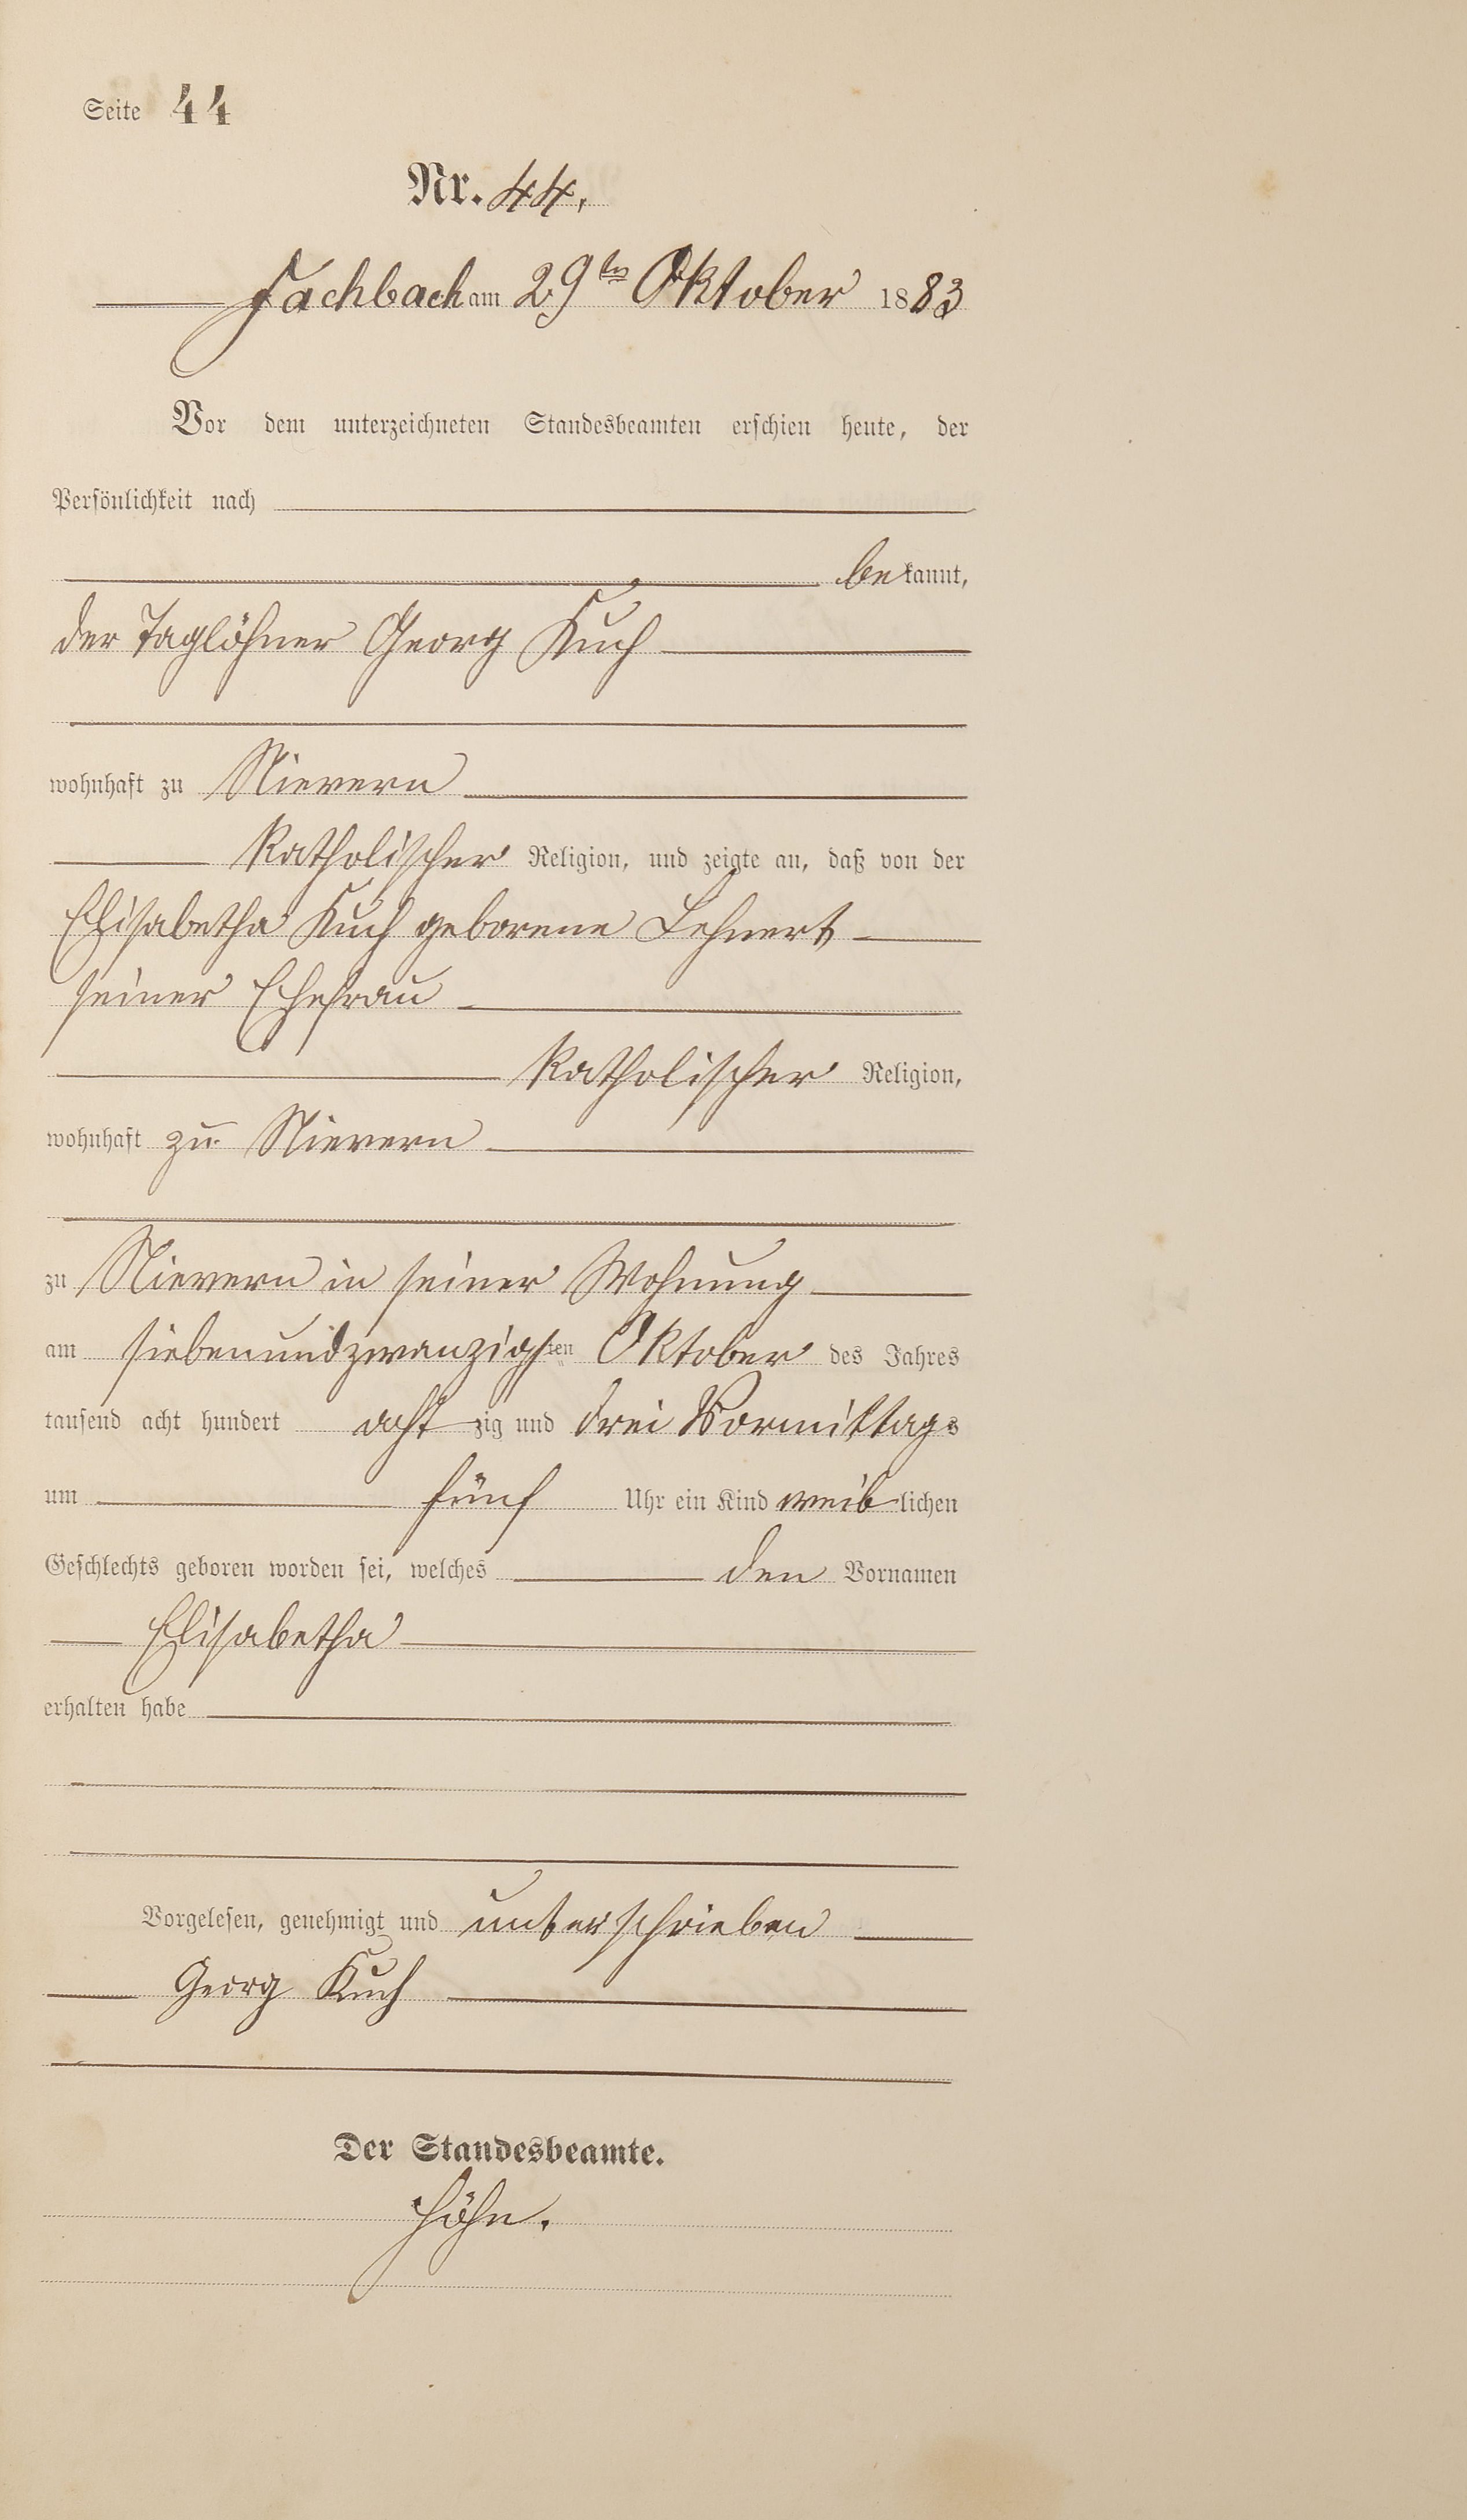 Seite 44
Nr. 44.
Fachbach am 29ten Oktober 1883
Vor dem unterzeichneten Standesbeamten erschien heute, der
Persönlichkeit nach
bekannt,
der Taglöhner Georg Kuch
wohnhaft zu Nievern
katholischer Religion, und zeigte an, daß von der
Elisabetha Kuch geborene Lehnert
seiner Ehefrau
katholischer Religion,
wohnhaft zu Nievern
zu Nievern in seiner Wohnung
am siebenundzwanzigsten Oktober des Jahres
tausend acht hundert acht zig und drei Vormittags
um fünf Uhr ein Kind weiblichen
Geschlechts geboren worden sei, welches den Vornamen
Elisabetha
erhalten habe
Vorgelesen, genehmigt und unterschrieben
Georg Kuch
Der Standesbeamte.
Höhn.